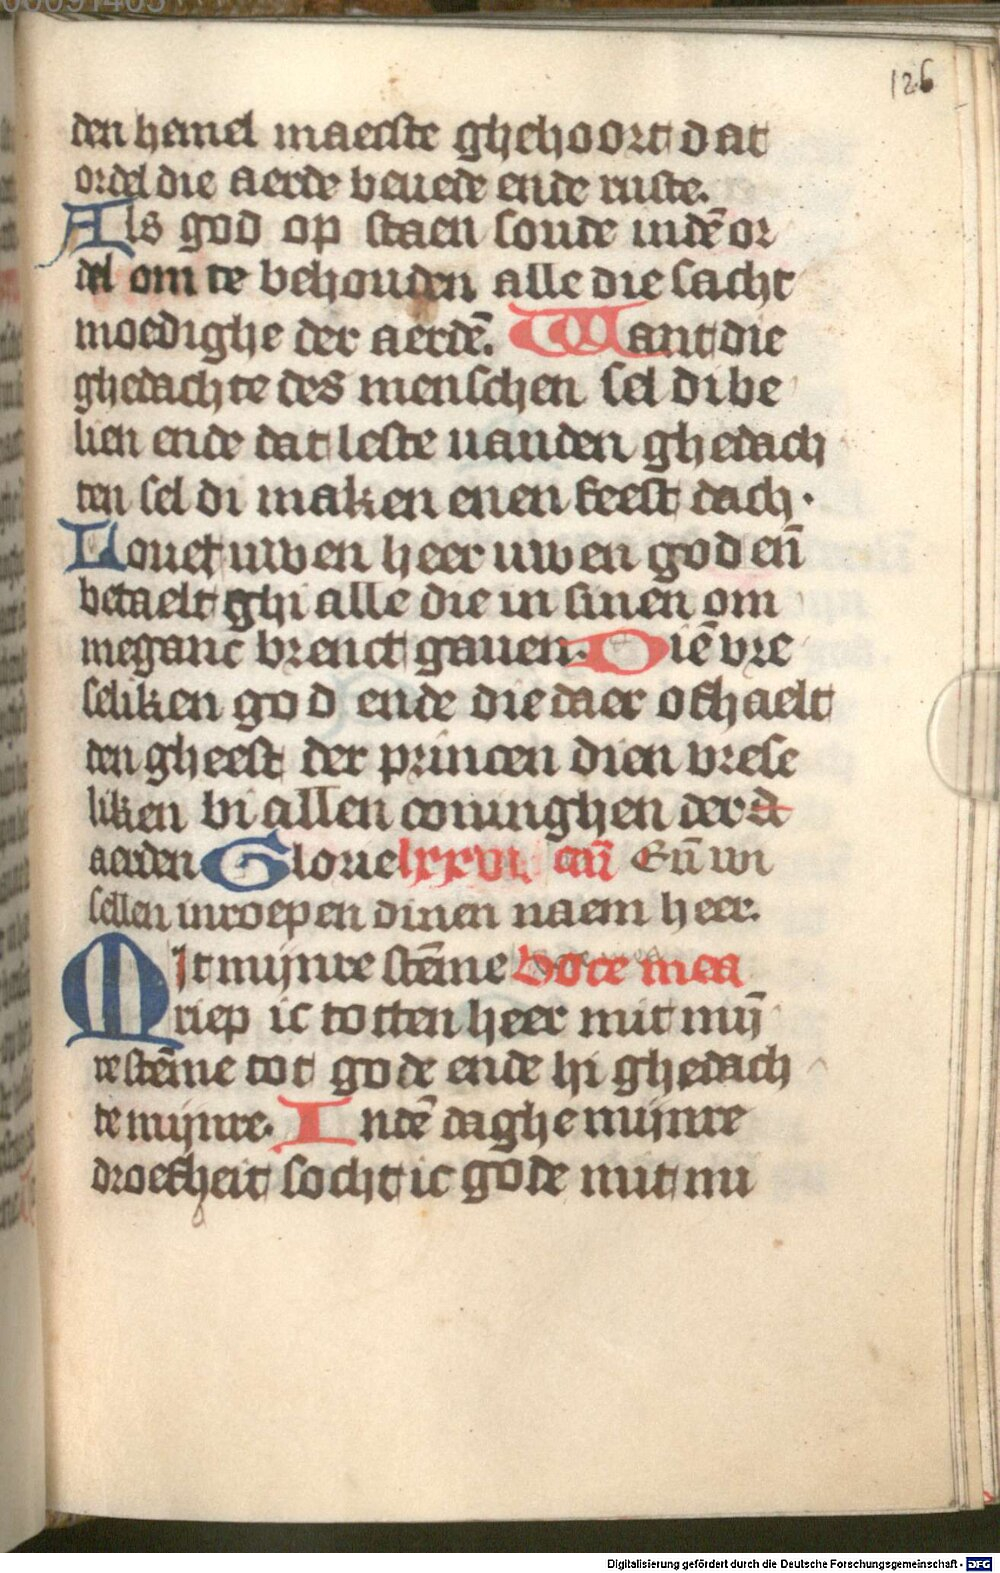 126
den hemel maecste ghehoort dat
ordel die aerde beuede ende ruste.
Als god op staen soude indē or
del om te behouden alle die sacht
moedighe der aerdē. Want die
ghedachte des menschen sel di be
lien ende dat leste uanden ghedach
ten sel di maken enen feest dach.
Louet uwen heer uwen god eñ
betaelt ghi alle die in sinen om
meganc brenct gauen. Diē vre
seliken god ende die daer ofhaelt
den gheest der princen dien vrese
liken bi allen coninghen der d
aerden Glorie lxxvi Eñ wi
sellen inroepen dinen naem heer.
Mit mijnre stēme voce mea
riep ic totten heer mit mij̄
re stēme tot gode ende hi ghedach
te mijnre. In dē daghe mijnre
droefheit socht ic gode mit mi
Digitalisierung gefördert durch die Deutsche Forschungsgemeinschaft - DFG